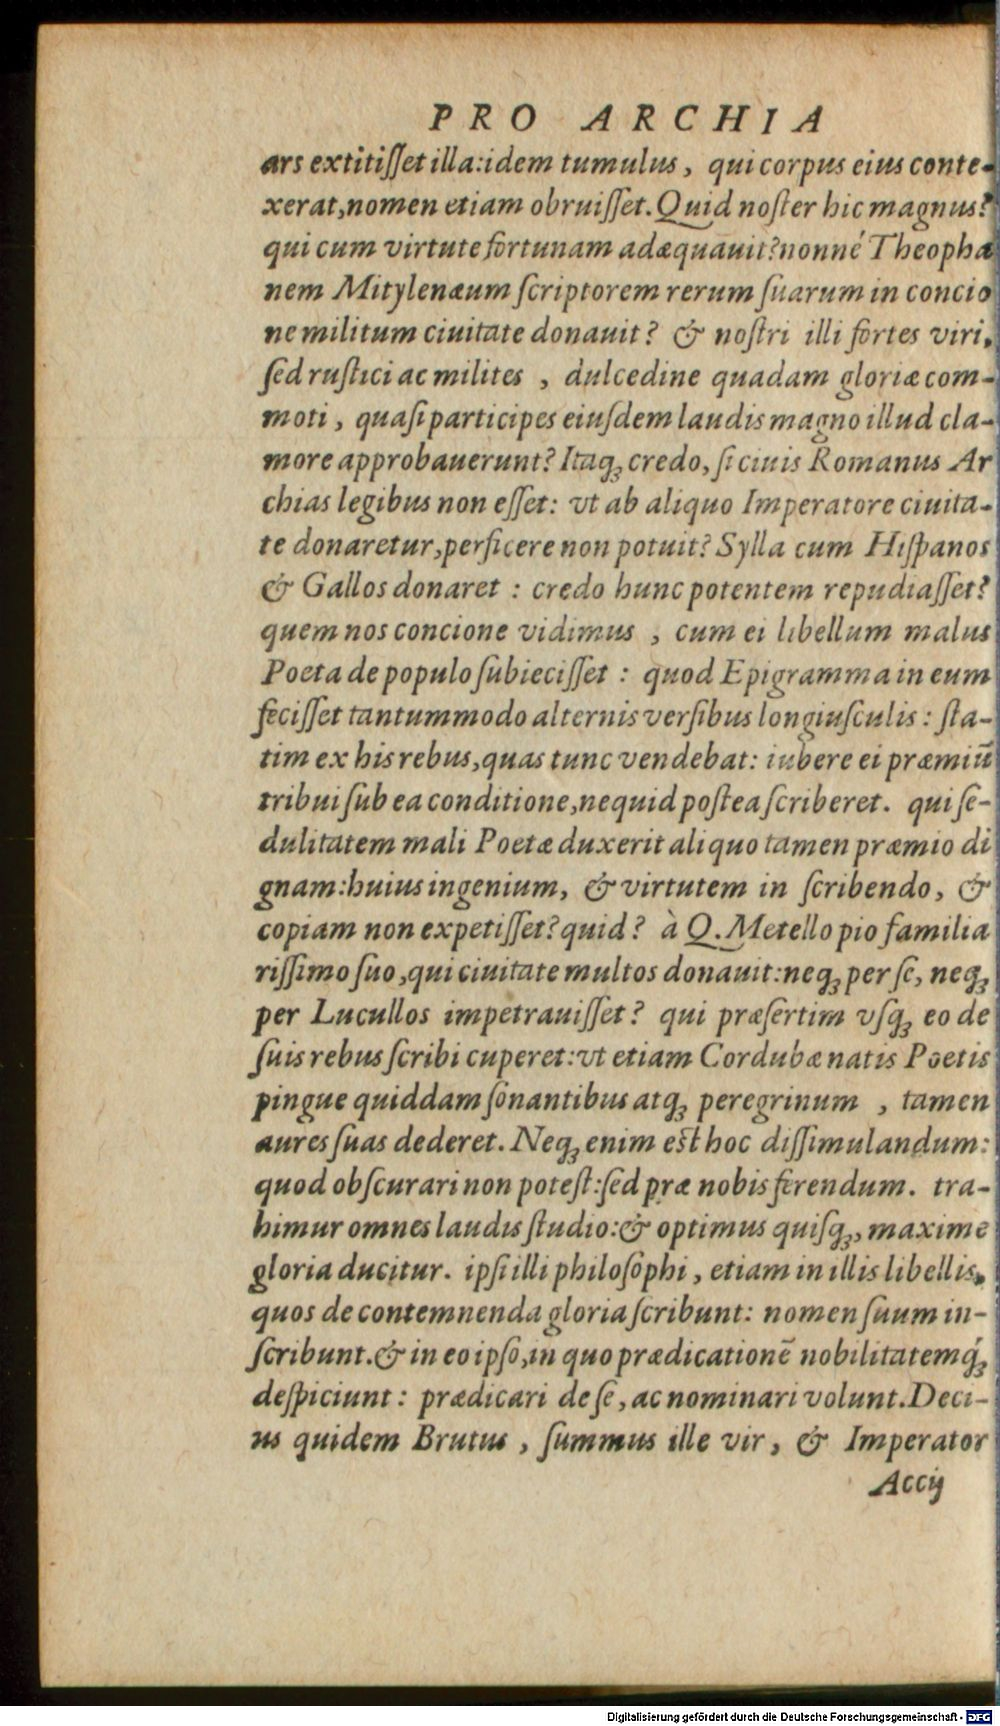 PRO ARCHIA
ars extitiſſet illa:idem tumulus, qui corpus eius conte-
xerat,nomen etiam obruiſſet. Quid noſter hic magnus?
qui cum virtute fortunam adæquauit?nonné Theopha
nem Mitylenæum ſcriptorem rerum ſuarum in concio
ne militum ciuitate donauit? & noſtri illi fortes viri,
ſed ruſtici ac milites , dulcedine quadam gloriæ com-
moti, quaſi participes eiuſdem laudis magno illud cla-
more approbauerunt? Itaqꝫ credo, ſi ciuis Romanus Ar
chias legibus non eſſet: vt ab aliquo Imperatore ciuita-
te donaretur,perficere non potuit? Sylla cum Hiſpanos
& Gallos donaret : credo hunc potentem repudiaſſet?
quem nos concione vidimus , cum ei libellum malus
Poeta de populo ſubieciſſet : quod Epigramma in eum
feciſſet tantummodo alternis verſibus longiuſculis : ſta-
tim ex his rebus,quas tunc vendebat: iubere ei præmiū
tribui ſub ea conditione,nequid poſtea ſcriberet. qui ſe-
dulitatem mali Poetæ duxerit aliquo tamen præmio di
gnam:huius ingenium, & virtutem in ſcribendo, &
copiam non expetiſſet?quid? à Q. Metello pio familia
riſſimo ſuo,qui ciuitate multos donauit:neqꝫ per ſe, neqꝫ
per Lucullos impetrauiſſet? qui præſertim vſqꝫ eo de
ſuis rebus ſcribi cuperet:vt etiam Cordubæ natis Poetis
pingue quiddam ſonantibus atqꝫ peregrinum , tamen
aures ſuas dederet. Neqꝫ enim eſt hoc diſſimulandum:
quod obſcurari non poteſt:ſed præ nobis ferendum. tra-
himur omnes laudis ſtudio:& optimus quiſqꝫ, maxime
gloria ducitur. ipſi illi philoſophi, etiam in illis libellis,
quos de contemnenda gloria ſcribunt: nomen ſuum in-
ſcribunt.& in eo ipſo,in quo prædicationē nobilitatemq́ꝫ
deſpiciunt: prædicari de ſe, ac nominari volunt. Deci-
us quidem Brutus, ſummus ille vir, & Imperator
Accij
Digitalisierung gefördert durch die Deutsche Forschungsgemeinschaft - DFG